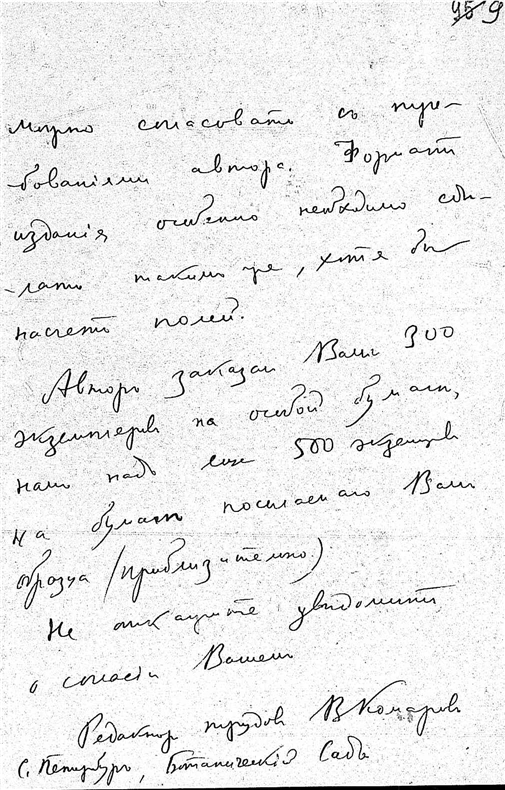 95 9
можно согласовать съ тре-
-бованіями автора. Форматъ
изданія особенно необходимо сдѣ-
-лать такимъ же, хотя бы
насчетъ полей.
Авторъ заказалъ Вамъ 300
экземпляровъ на особой бумагѣ,
намъ надо еще 500 экземпляровъ
на бумагѣ посылаемаго Вамъ
образца (приблизительно)
Не откажите увѣдомить
о согласіи Вашемъ
Редакторъ трудовъ В Комаровъ
С. Петербургъ, Ботаническій Садъ